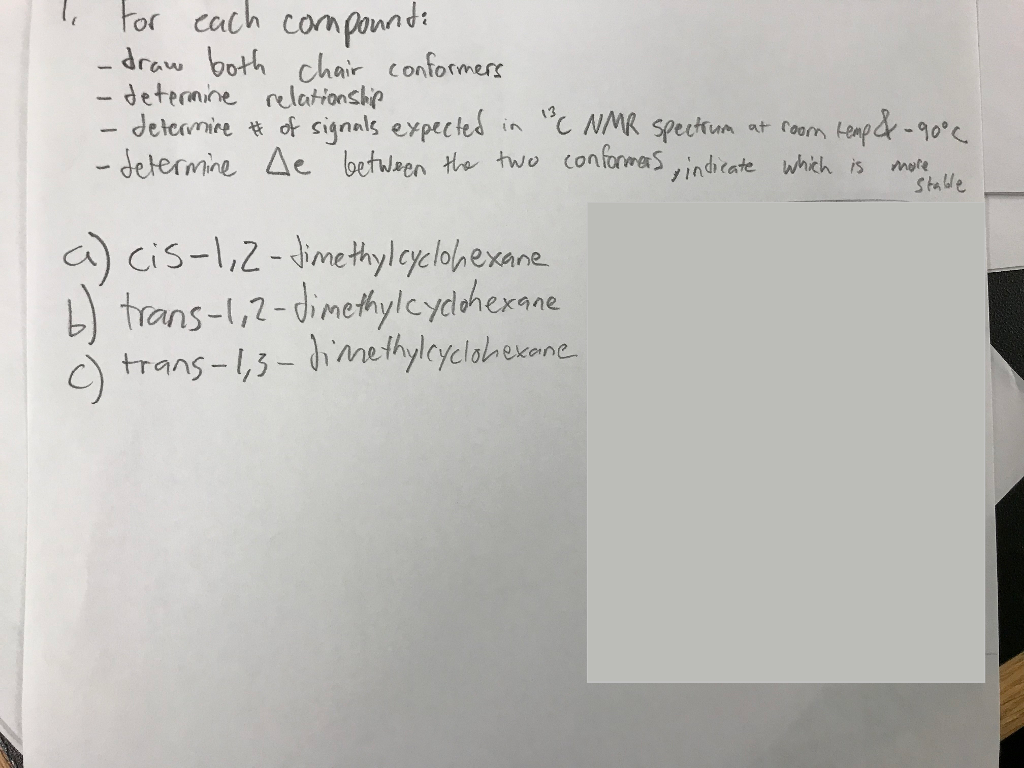 1. For each compound:
- draw both chair conformers
- determine relationship
- determine # of signals expected in ¹³C NMR spectrum at room temp & -90°C
- determine Δe between the two conformers, indicate which is more stable
a) cis-1,2-dimethylcyclohexane
b) trans-1,2-dimethylcyclohexane
c) trans-1,3-dimethylcyclohexane